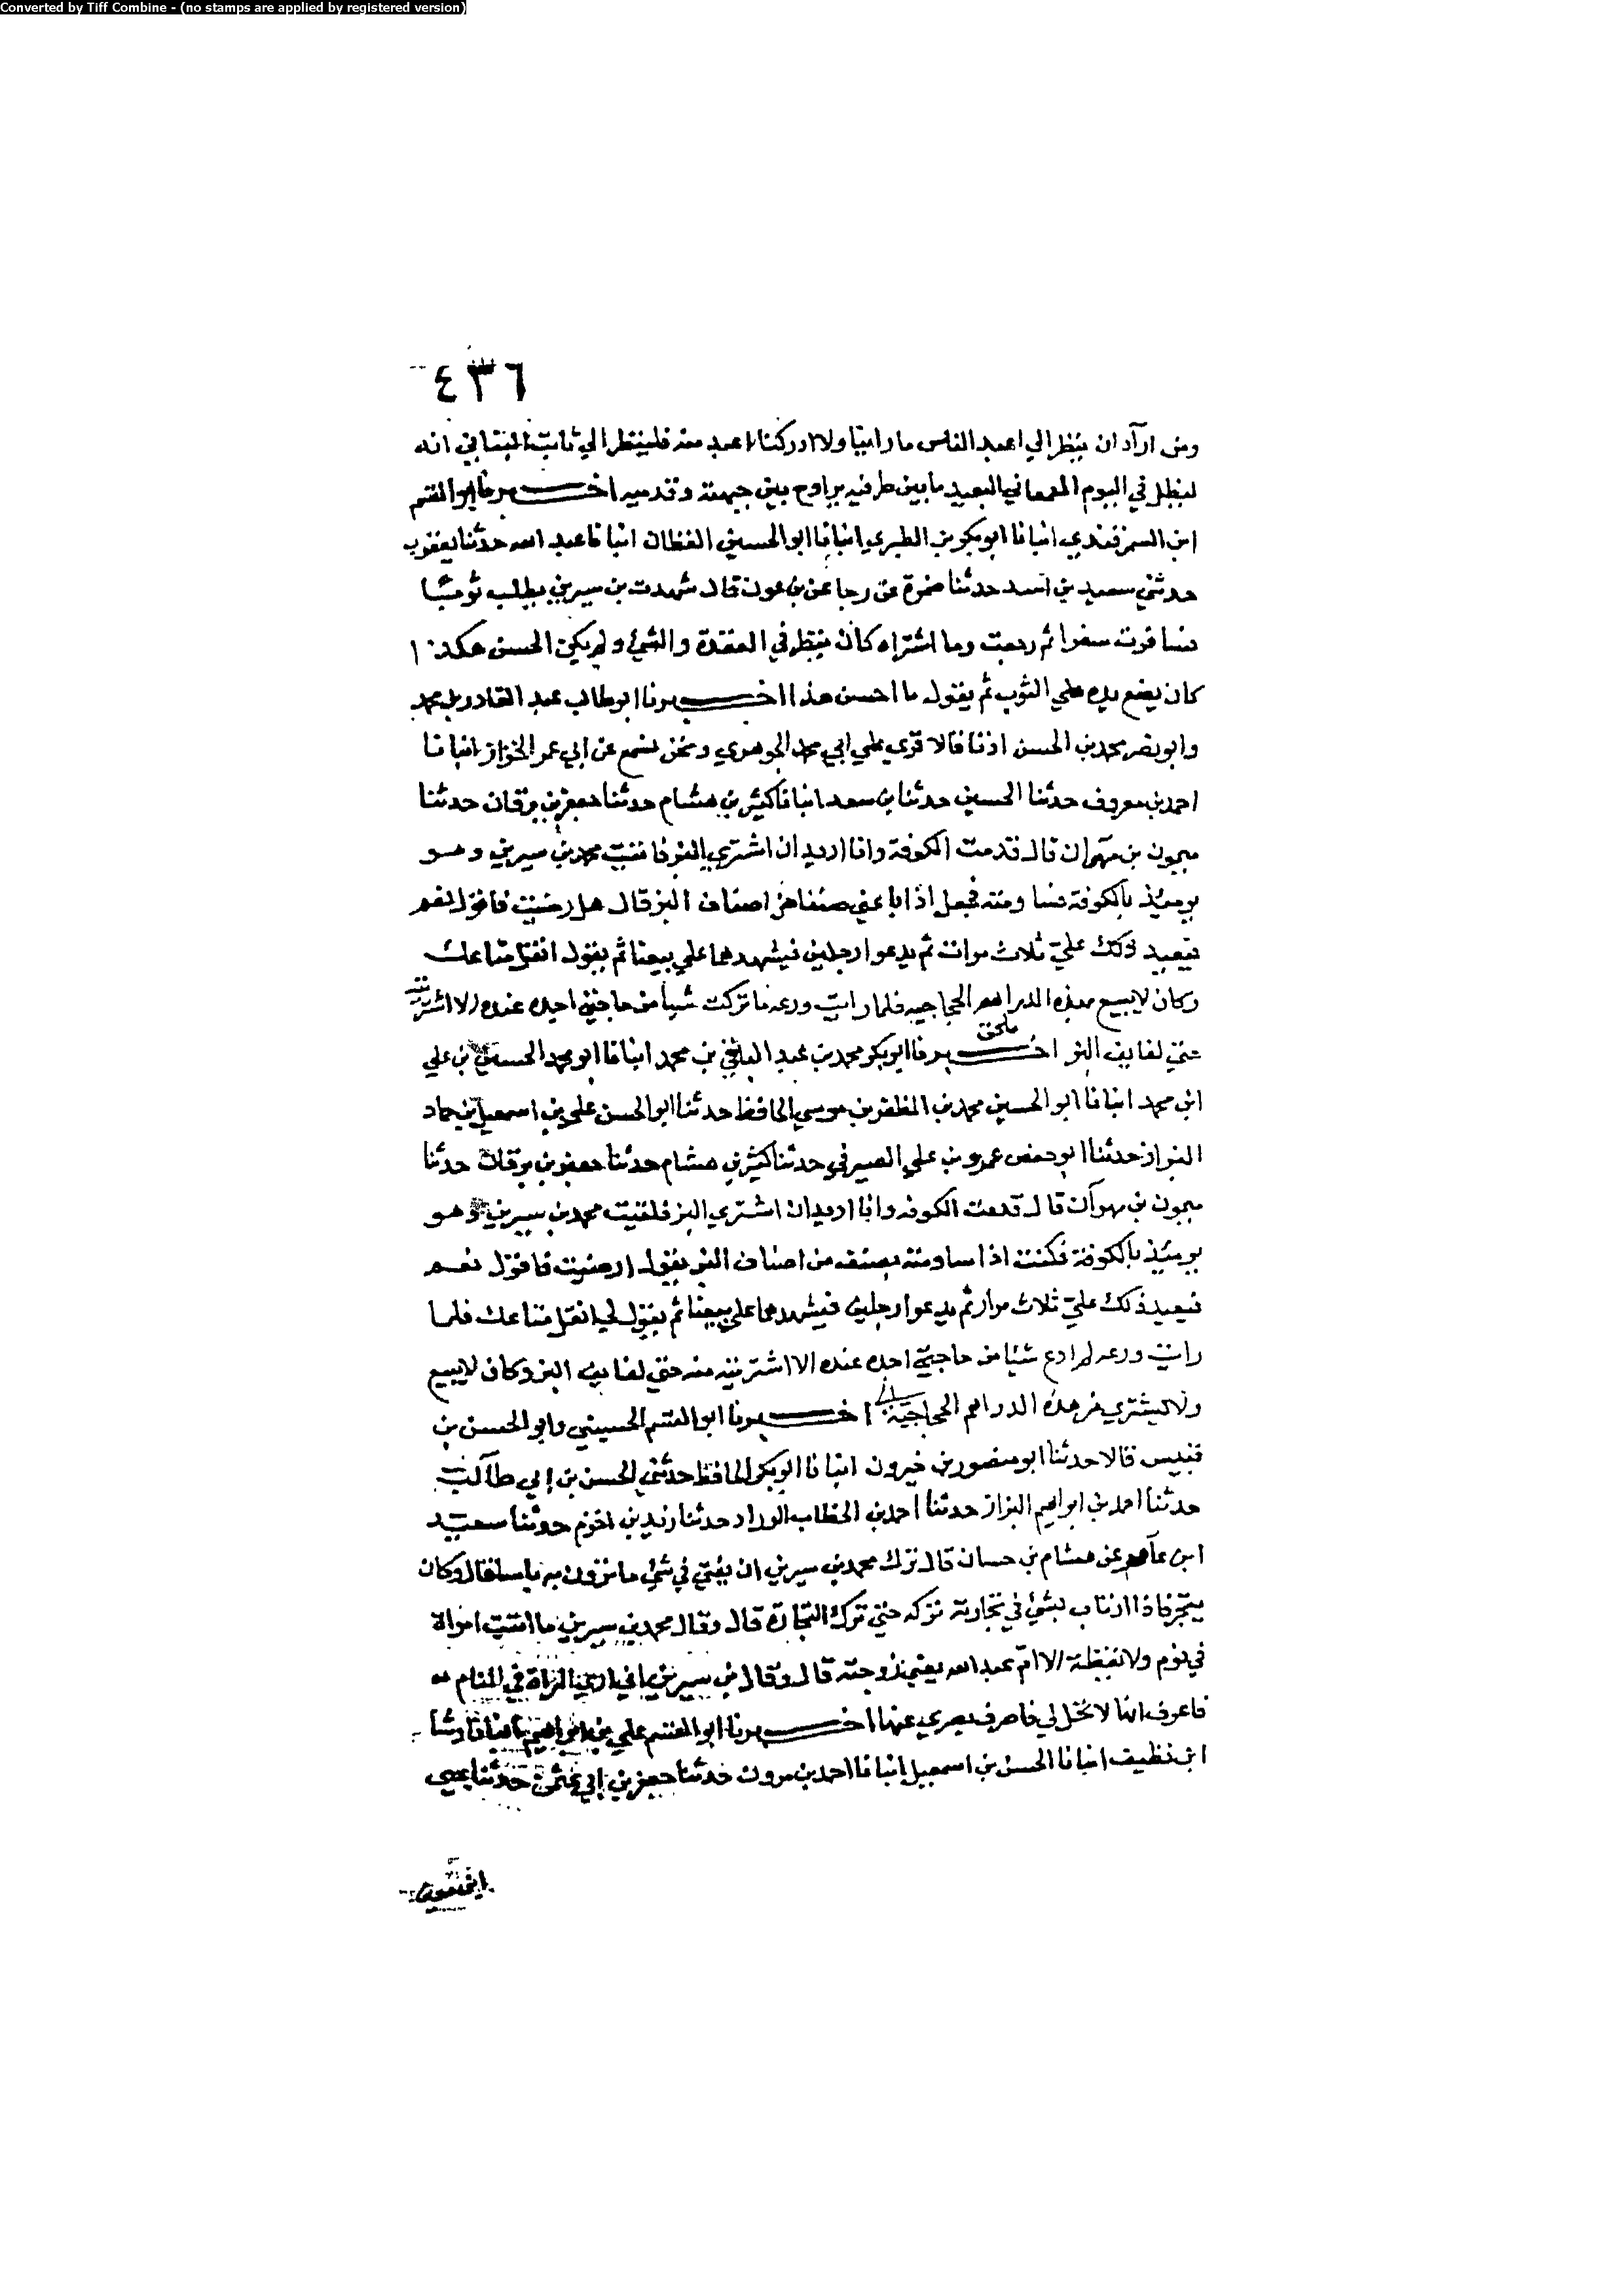 Converted by Tiff Combine - (no stamps are applied by registered version)
٤٣٦
ومن اراد ان ينظر الي اعبد الناس ما راينا ولا ادركنا اعبد منه فلينظر الي ثابت البناني انه
ليظل في اليوم المعمعاني البعيد ما بين طرفيه يراوح بين جبهته وقدميه اخبرنا ابو القسم
ابن السمرقندي انبانا ابو بكر بن الطبري انبانا ابو الحسين القطان انبانا عبد الله حدثنا يعقوب
حدثني سعيد بن اسد حدثنا ضمرة عن رجا عن بن عون قال شهدت بن سيرين يطلب ثوبا
فسافرت سفرا ثم رجعت وما اشتراه كان ينظر في العقدة والشي ولم يكن الحسن هكذا
كان يضع يده علي الثوب ثم يقول ما احسن هذا اخبرنا ابو طالب عبد القادر بن محمد
وابو نصر محمد بن الحسن اذنا قالا قري علي ابي محمد الجوهري ونحن نسمع عن ابي عمر الخزاز انبانا
احمد بن معروف حدثنا الحسين حدثنا بن سعد انبانا كثير بن هشام حدثنا جعفر بن برقان حدثنا
ميمون بن مهران قال قدمت الكوفة وانا اريد ان اشتري البز فاتيت محمد بن سيرين وهو
يوميذ بالكوفة فساومته فجعل اذا باعني صنفا من اصناف البز قال هل رضيت فاقول نعم
فيعيد ذلك علي ثلاث مرات ثم يدعوا رجلين فيشهدهما علي بيعنا ثم يقول انقل متاعك
وكان لا يبيع بهذه الدراهم الحجاجيه فلما رايت ورعه ما تركت شيا من حاجتي اجده عنده الا اشتريته
حتي لفايف البز اخبرنا ابو بكر محمد بن عبد الباقي بن محمد انبانا ابو محمد الحسن بن علي
ملحق
ابن محمد انبانا ابو الحسين محمد بن المظفر بن موسي الحافظ حدثنا ابو الحسن علي بن اسمعيل بن حماد
البزاز حدثنا ابو حفص عمرو بن علي الصيرفي حدثنا كثير بن هشام حدثنا جعفر بن برقان حدثنا
ميمون بن مهران قال قدمت الكوفه وانا اريد ان اشتري البز فلقيت محمد بن سيرين وهو
يوميذ بالكوفة فكنت اذا ساومته بصنف من اصناف البز يقول ارضيت فاقول نعم
فيعيد ذلك علي ثلاث مرار ثم يدعوا رجلين فيشهدهما علي بيعنا ثم يقول لي انقل متاعك فلما
رايت ورعه لم ادع شيا من حاجتي اجده عنده الا اشتريته منه حتي لفايف البز وكان لا يبيع
ولا يشتري من هذه الدراهم الحجاجية اخبرنا ابو القسم الحسيني وابو الحسن بن
قبيس قالا حدثنا ابو منصور بن خيرون انبانا ابو بكر الحافظ حدثني الحسن بن ابي طالب
حدثنا احمد بن ابراهيم البزاز حدثنا احمد بن الخطاب الوراد حدثنا زيد بن اخزم حدثنا سعيد
ابن عامر عن هشام بن حسان قال ترك محمد بن سيرين ان يفتي في شي ما ترون به باسا قال وكان
يتجر فاذا ارتاب بشي في تجارته تركه حتي ترك التجارة قال وقال محمد بن سيرين ما اتيت امراة
في نوم ولا يقظة الا ام عبد الله يعني زوجته قال وقال بن سيرين اني اري المراة في المنام
فاعرف انها لا تحل لي فاصرف بصري عنها اخبرنا ابو القسم علي بن ابراهيم انبانا رشا
ابن نظيف انبانا الحسن بن اسمعيل انبانا احمد بن مروان حدثنا جعفر بن ابي عثمن حدثنا يحيي